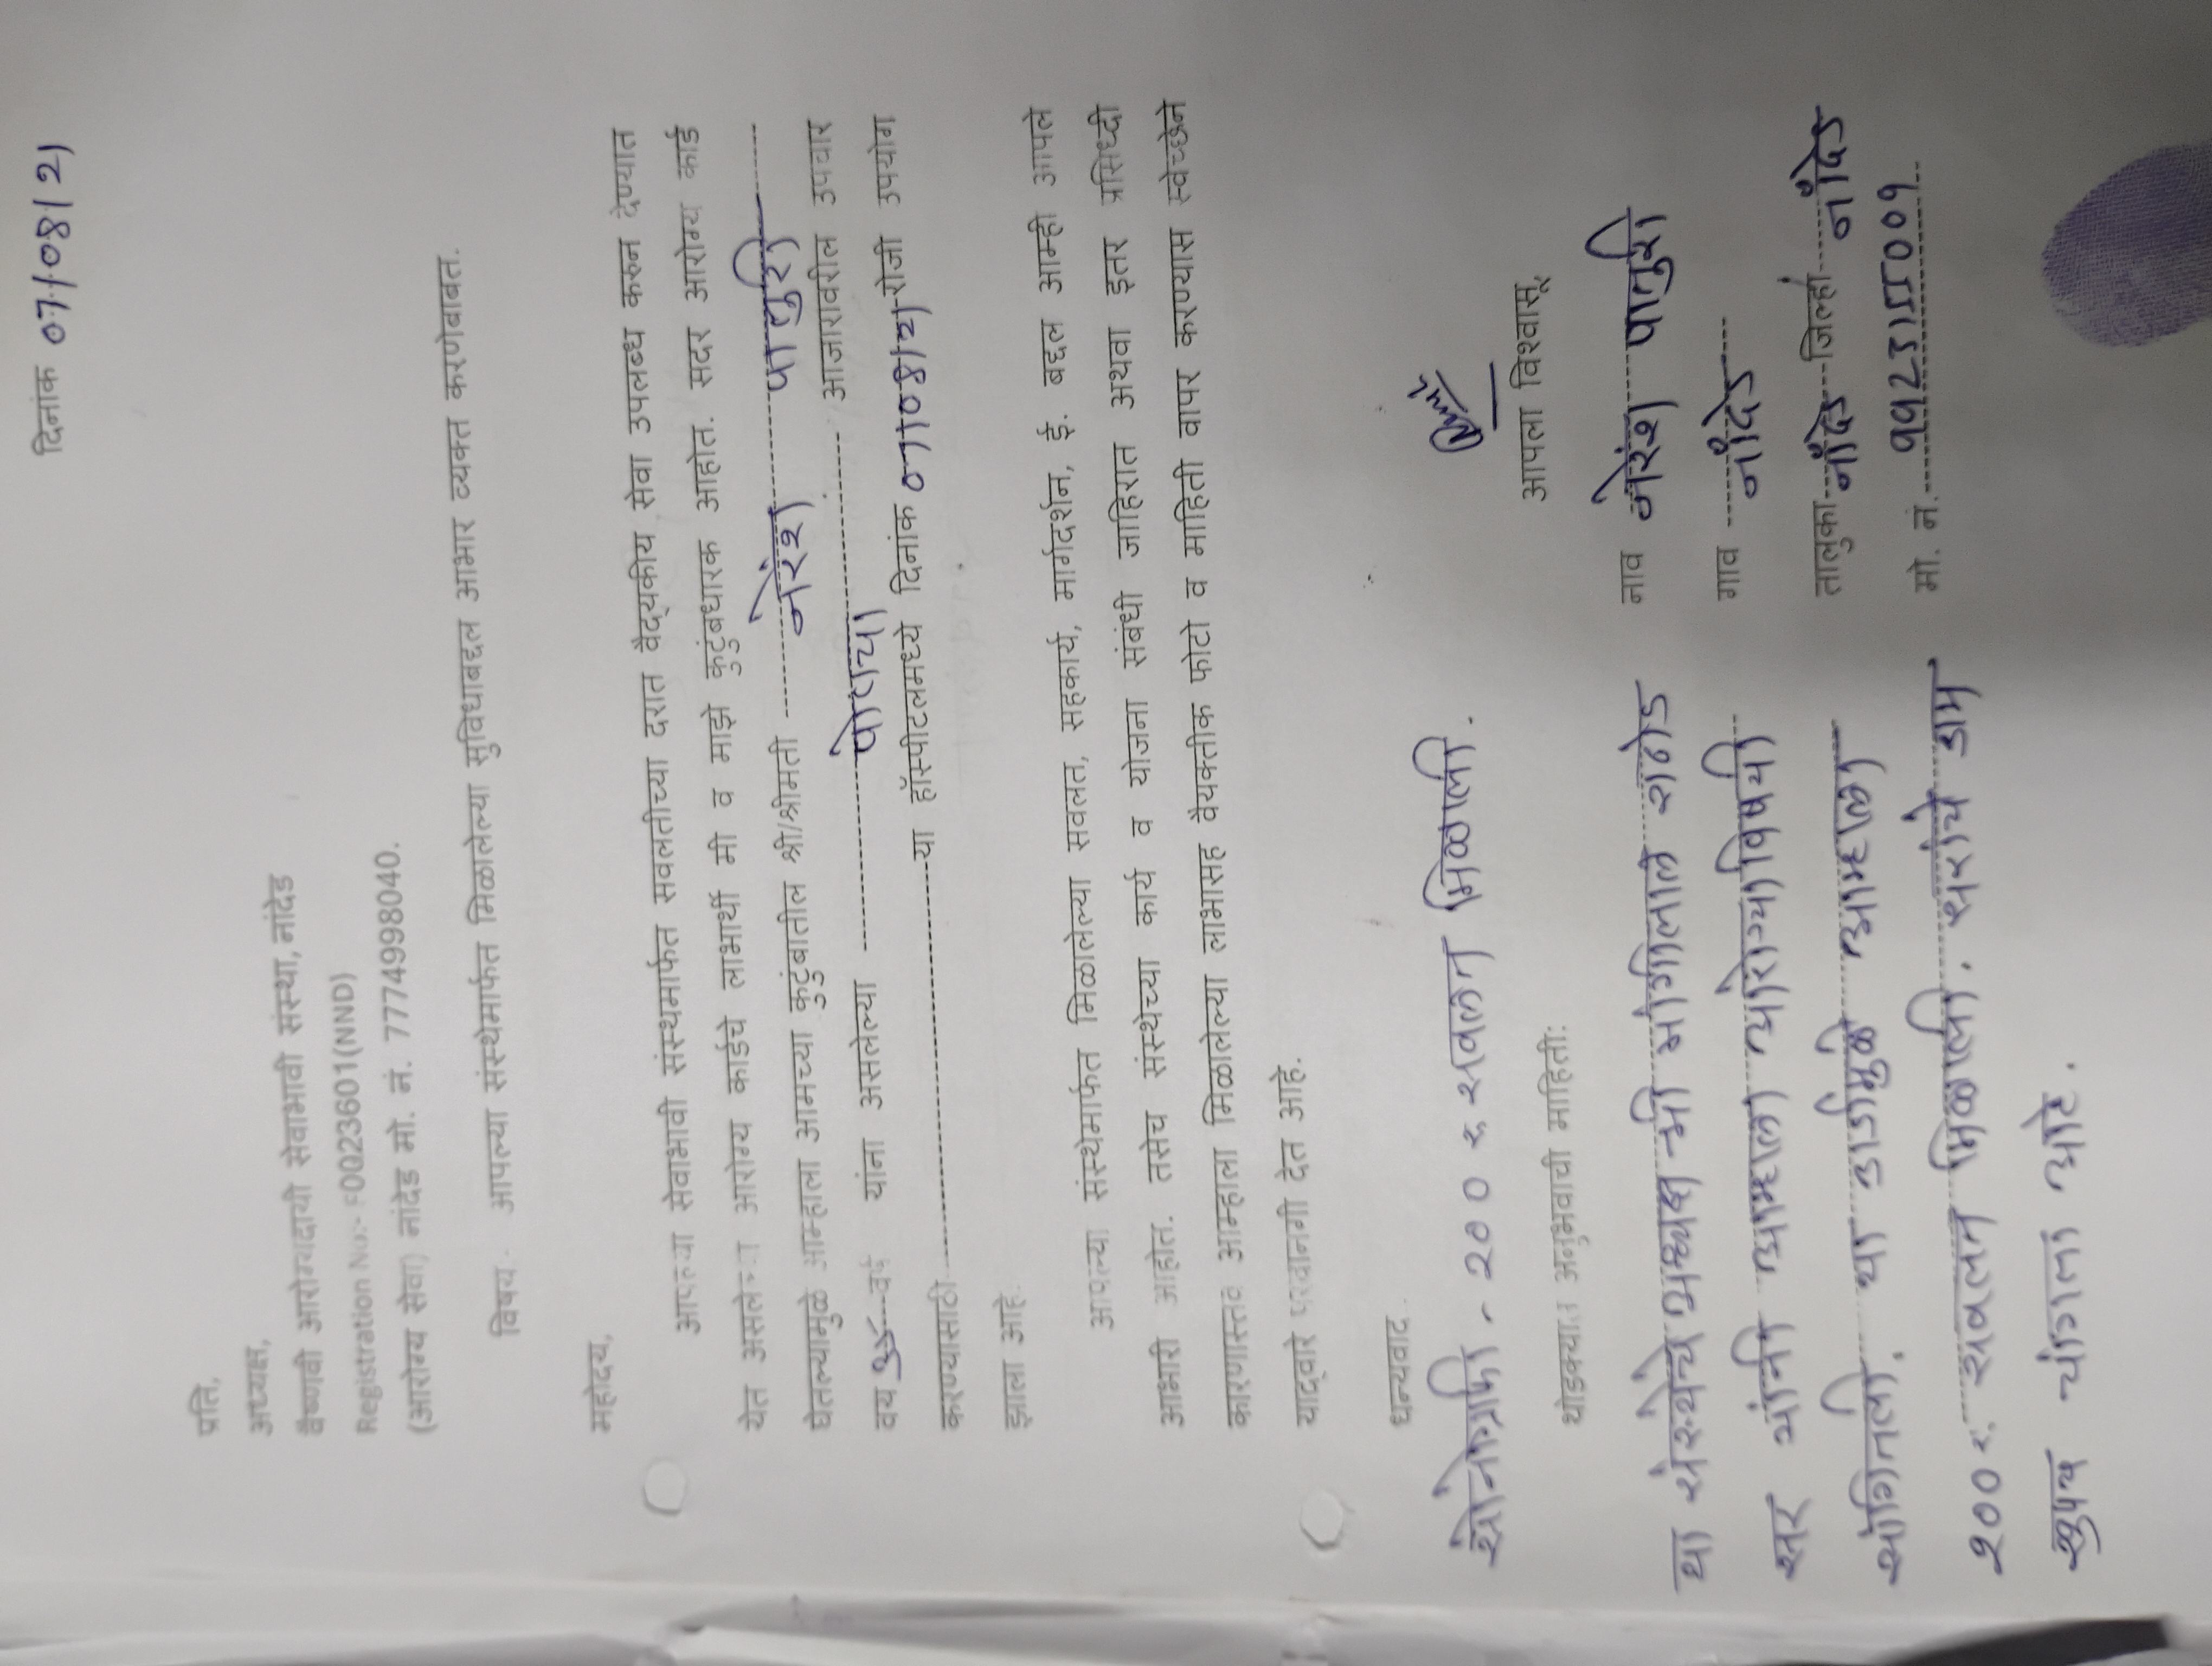 दिनांक 07/08/21
प्रति,
अध्यक्ष,
वैष्णवी आरोग्यदायी सेवाभावी संस्था, नांदेड
Registration No:- F0023601(NND)
(आरोग्य सेवा) नांदेड मो. नं. 7774998040.
विषय:- आपल्या संस्थेमार्फत मिळालेल्या सुविधाबद्दल आभार व्यक्त करणेबाबत.
महोदय,
आपल्या सेवाभावी संस्थेमार्फत सवलतीच्या दरात वैद्यकीय सेवा उपलब्ध करुन देण्यात
येत असलेल्या आरोग्य कार्डचे लाभार्थी मी व माझे कुटुंबधारक आहोत. सदर आरोग्य कार्ड
घेतल्यामुळे आम्हाला आमच्या कुटुंबातील श्री/श्रीमती नरेश पालुरी
वय वर्ष यांना असलेल्या पोटाच्या आजारावरील उपचार
करण्यासाठी या हॉस्पीटलमध्ये दिनांक 07/08/21 रोजी उपयोग
झाला आहे.
आपल्या संस्थेमार्फत मिळालेल्या सवलत, सहकार्य, मार्गदर्शन, ई. बद्दल आम्ही आपले
आभारी आहोत. तसेच संस्थेच्या कार्य व योजना संबंधी जाहिरात अथवा इतर प्रसिध्दी
कारणास्तव आम्हाला मिळालेल्या लाभासह वैयक्तीक फोटो व माहिती वापर करण्यास स्वेच्छेने
याद्वारे परवानगी देत आहे.
धन्यवाद
सोनोग्राफी - 200 रु सवलत मिळाली.
आपला विश्वासू
थोडक्यात अनुभवाची माहिती:
नाव नरेश पालुरी
गाव नांदेड
तालुका नांदेड जिल्हा नांदेड
मो. नं.
या संस्थेचे अध्यक्ष श्री मांगीलाल राठोड
सर यांनी आम्हाला आरोग्याविषयी
माहिती सांगितली. या कार्डामुळे आम्हाला
२०० रु. सवलत मिळाली. सरांचे काम
खुपच चांगला आहे.